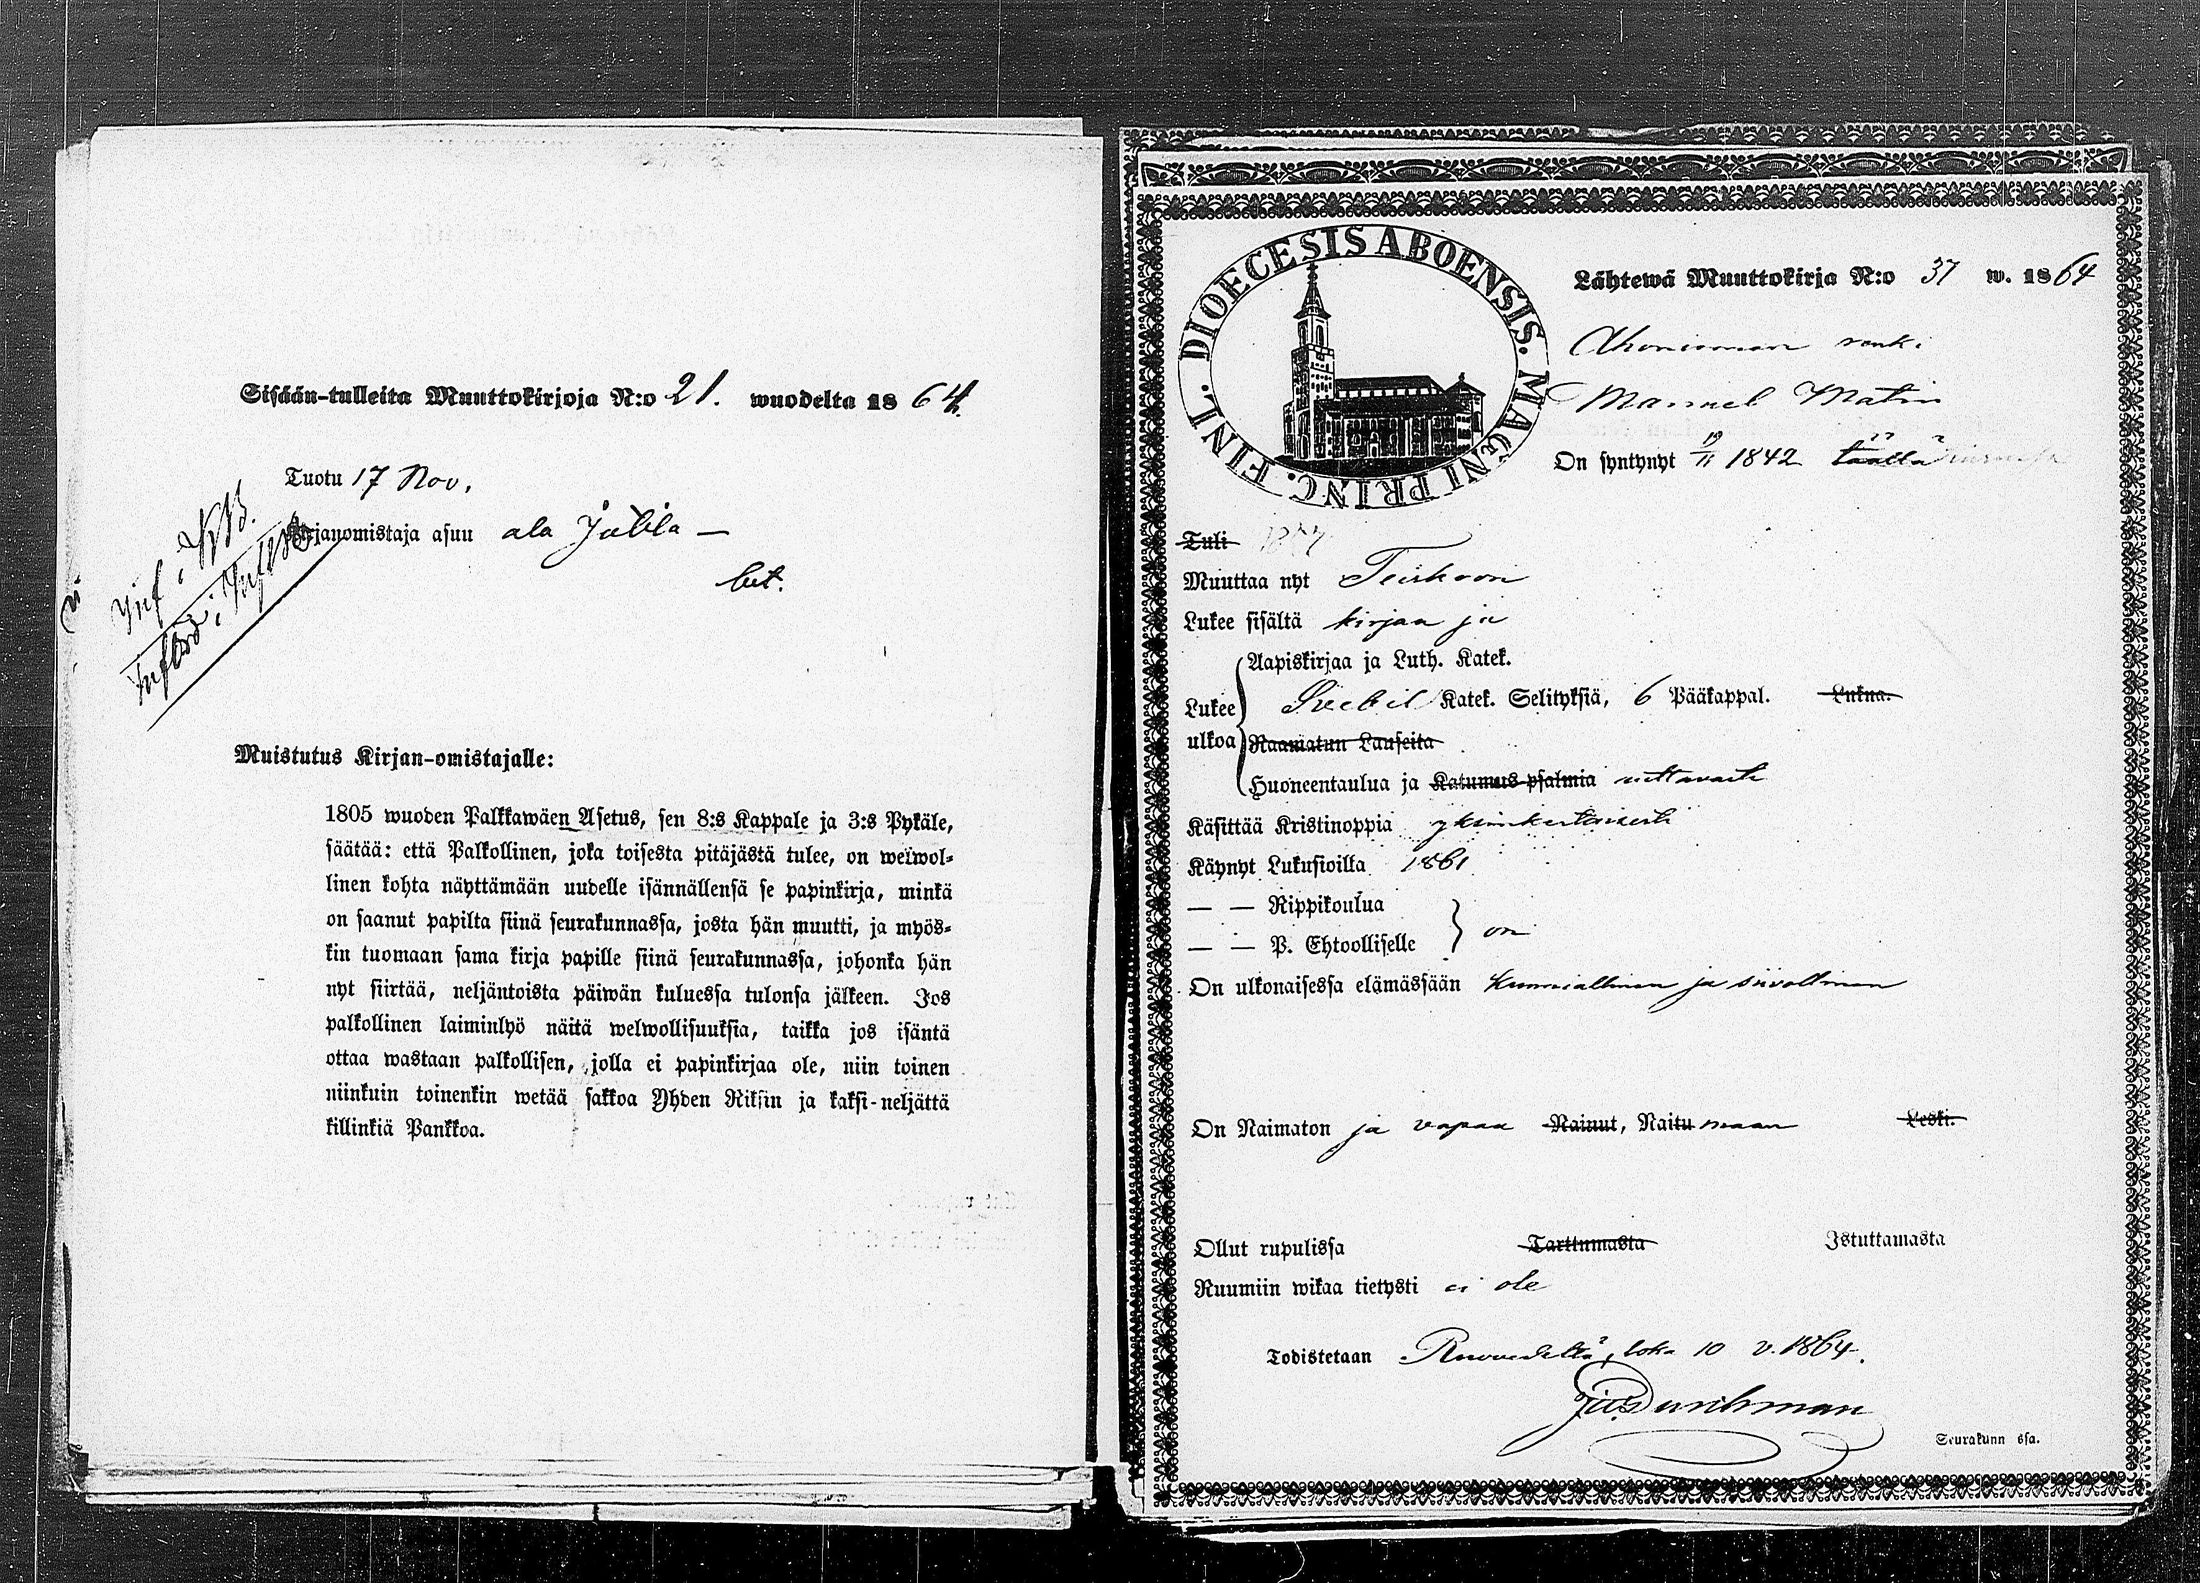 Sisään-tulleita Muuttokirjoja N:o 21. wuodelta 1864.
Tuotu 17 Nov.
Kirjanomistaja asuu ala Jutila —
bet.
Muistutus Kirjan-omistajalle:
1805 wuoden Palkkawäen Asetus, sen 8:s Kappale ja 3:s Pykäle,
säätää: että Palkollinen, joka toisesta pitäjästä tulee, on welwol-
linen kohta näyttämään uudelle isännällensä se papinkirja, minkä
on saanut papilta siinä seurakunnassa, josta hän muutti, ja myös-
kin tuomaan sama kirja papille siinä seurakunnassa, johonka hän
nyt siirtää, neljäntoista päiwän kuluessa tulonsa jälkeen. Jos
palkollinen laiminlyö näitä welwollisuuksia, taikka jos isäntä
ottaa wastaan palkollisen, jolla ei papinkirjaa ole, niin toinen
niinkuin toinenkin wetää sakkoa Yhden Riksin ja kaksi-neljättä
killinkiä Pankkoa.
FINL. DIOECESIS ABOENSIS. MAGNI PRINC.
Lähtewä Muuttokirja N:o 37 w. 1864
renki
Manuel Matin
On syntynyt 19/11 1842 täällä
Tuli
Muuttaa nyt Teiskoon
Lukee sisältä kirjaa ja
Aapiskirjaa ja Luth. Katek.
Lukee ulkoa Svebil Katek. Selityksiä, 6 Pääkappal. Lukua.
Raamatun Lauseita
Huoneentaulua ja Katumus-psalmia auttavasti
Käsittää Kristinoppia yksinkertaisesti
Käynyt Lukusioilla 1861
— — Rippikoulua
— — P. Ehtoolliselle } on
On ulkonaisessa elämässään kunniallinen ja siivollinen
On Naimaton ja vapaa Nainut, Naitumaan Leski.
Ollut rupulissa Tarttumasta Istuttamasta
Ruumiin wikaa tietysti ei ole
Todistetaan Ruovedellä, loka 10 v. 1864.
Seurakunnassa.